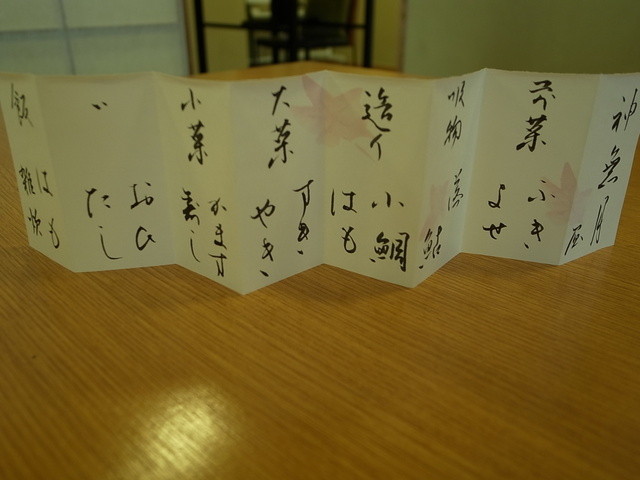 神無月
昼
前菜
ふき
よせ
吸物
鮎
造り
小鯛
はも
大菜
すき
やき
小菜
かます
寿し
〃
おひ
たし
飯
はも
雑炊